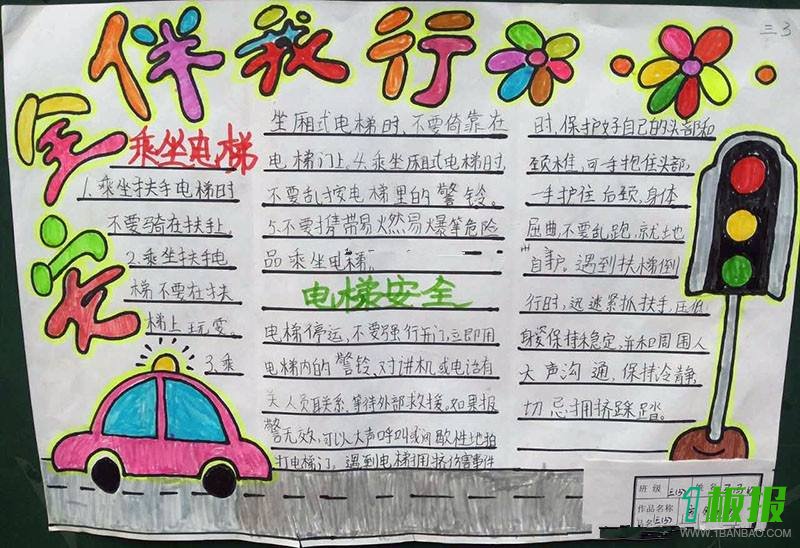 安全伴我行
三3
乘坐电梯
1.乘坐扶手电梯时
不要骑在扶手上
2.乘坐扶手电
梯不要在扶
梯上玩耍。
3.乘
坐厢式电梯时,不要倚靠在
电梯门上。4.乘坐厢式电梯时,
不要乱按电梯里的警铃。
5.不要携带易燃易爆等危险
品乘坐电梯。
电梯安全
电梯停运,不要强行开门,立即用
电梯内的警铃、对讲机或电话有
关人员联系,等待外部救援。如果报
警无效,可以大声呼叫或间歇性地拍
打电梯门。遇到电梯拥挤伤害事件
时,保护好自己的头部和
颈椎,可手抱住头部,
一手护住后颈,身体
屈曲,不要乱跑,就地
自护。遇到扶梯倒
行时,迅速紧抓扶手,压低
身姿保持稳定,并和周围人
大声沟通,保持冷静
切忌拥挤踩踏。
班级 三(3)
姓名
作品名称
班名 三(3)
板报
WWW.1BANBAO.COM